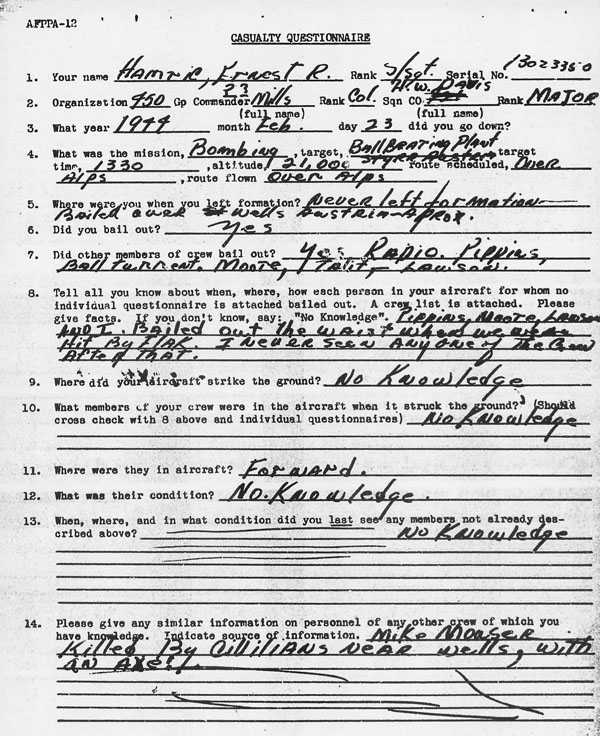 AFPPA-12
CASUALTY QUESTIONNAIRE
1. Your name HAMRIC, Ernest R. Rank S/Sgt. Serial No. 13023350
2. Organization 450 Gp Commander Mills Rank Col. Sqn CO H.W. DAVIS Rank MAJOR
23
(full name) (full name)
3. What year 1944 month Feb. day 23 did you go down?
4. What was the mission, Bombing, target, Ball Bearing Plant target
time, 1330, altitude, 21,000 route scheduled, Over
Alps, route flown Over Alps
5. Where were you when you left formation? Never left formation
Bailed over Wells Austria-Aprox.
6. Did you bail out? Yes
7. Did other members of crew bail out? Yes, Radio. Pippins,
Ball turrent. Moore, Tail, - Lawson.
8. Tell all you know about when, where, how each person in your aircraft for whom no
individual questionnaire is attached bailed out. A crew list is attached. Please
give facts. If you don't know, say: "No Knowledge". Pippins, Moore, Lawson
And I. Bailed out the waist when we were
Hit By Flak. I Never seen Any one of The Crew
After that.
9. Where did your aircraft strike the ground? No Knowledge
10. What members of your crew were in the aircraft when it struck the ground? (Should
cross check with 8 above and individual questionnaires) No Knowledge
11. Where were they in aircraft? Forward.
12. What was their condition? No. Knowledge.
13. When, where, and in what condition did you last see any members not already des-
cribed above? No Knowledge
14. Please give any similar information on personnel of any other crew of which you
have knowledge. Indicate source of information. Mike Moaser
Killed By Cillilians near wells, with
an Axe!